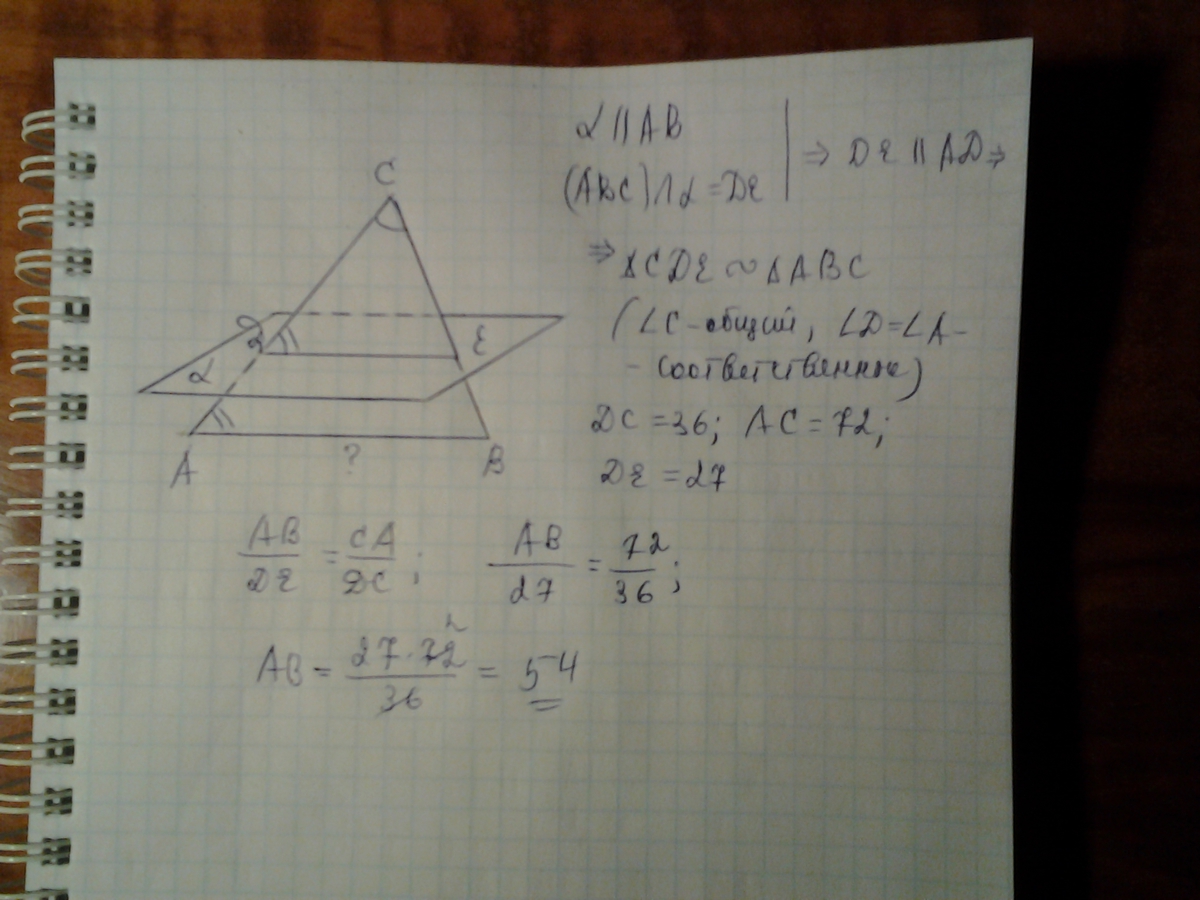 α || AB
(ABC) ∩ α = DE
⇒ DE || AD ⇒
⇒ ΔCDE ∾ ΔABC
(∠C - общий, ∠D = ∠A -
- соответственные)
DC = 36; AC = 72;
DE = 27
C
E
α
A
?
B
AB/DE = CA/DC; AB/27 = 72/36;
AB = 27·72/36 = 54
2